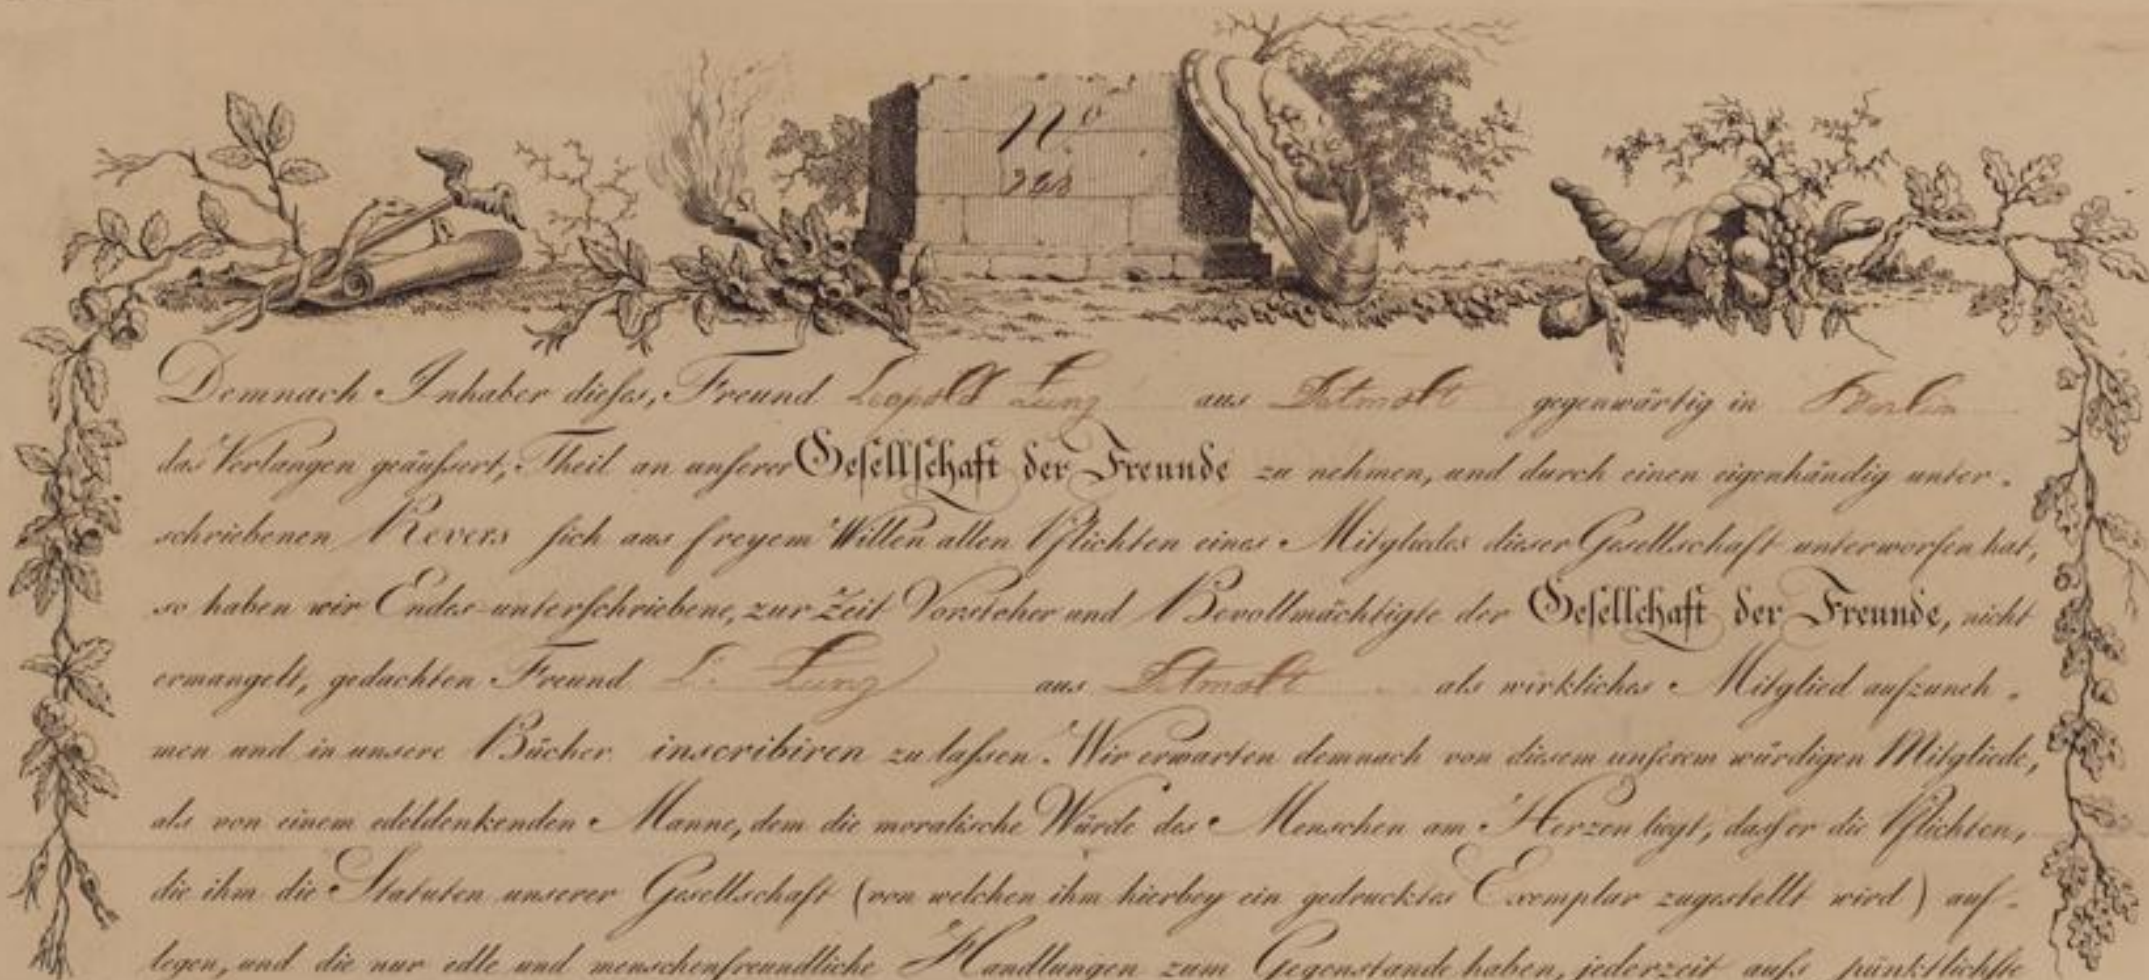 N.º
Demnach Inhaber dieses, Freund Leopold Zunz aus Detmolt gegenwärtig in Berlin
das Verlangen geäußert, Theil an unserer Gesellschaft der Freunde zu nehmen, und durch einen eigenhändig unter-
schriebenen Revers sich aus freyem Willen allen Pflichten eines Mitgliedes dieser Gesellschaft unterworfen hat,
so haben wir Endes-unterschriebene, zur Zeit Vorsteher und Bevollmächtigte der Gesellchaft der Freunde, nicht
ermangelt, gedachten Freund L: Zunz aus Detmolt als wirkliches Mitglied aufzuneh-
men und in unsere Bücher inscribiren zu lassen. Wir erwarten demnach von diesem unserem würdigen Mitgliede,
als von einem edeldenkenden Manne, dem die moralische Würde des Menschen am Herzen liegt, dass er die Pflichten,
die ihm die Statuten unserer Gesellschaft (von welchen ihm hierbey ein gedrucktes Exemplar zugestellt wird) auf-
legen, und die nur edle und menschenfreundliche Handlungen zum Gegenstande haben, jederzeit aufs pünktlichste